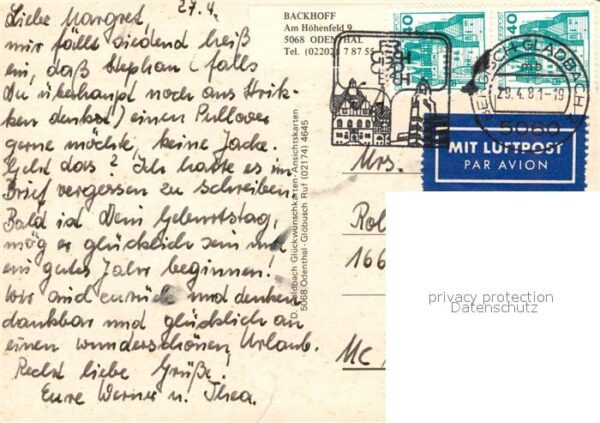 27.4.
Liebe Margret
mir fällt siedend heiß
ein, daß Stephan (falls
Du überhaupt noch ans Strik-
ken denkst) einen Pullover
gerne möchte, keine Jacke.
Geht das? Ich hatte es im
Brief vergessen zu schreiben
Bald ist Dein Geburtstag,
mög er glücklich sein und
ein gutes Jahr beginnen!
Wir sind zurück und denken
dankbar und glücklich an
einen wunderschönen Urlaub.
Recht liebe Grüße.
Eure Werner u. Thea.
BACKHOFF
Am Höhenfeld 9
5068 ODENTHAL
Tel. (02202) 7 87 55
Glückwunschkarten-Ansichtskarten
5068 Odenthal-Glöbusch Ruf (02174) 4645
40
40
BERGISCH GLADBACH
29.4.81-19
5060
MIT LUFTPOST
PAR AVION
Mrs.
Rol
166
MC
privacy protection
Datenschutz